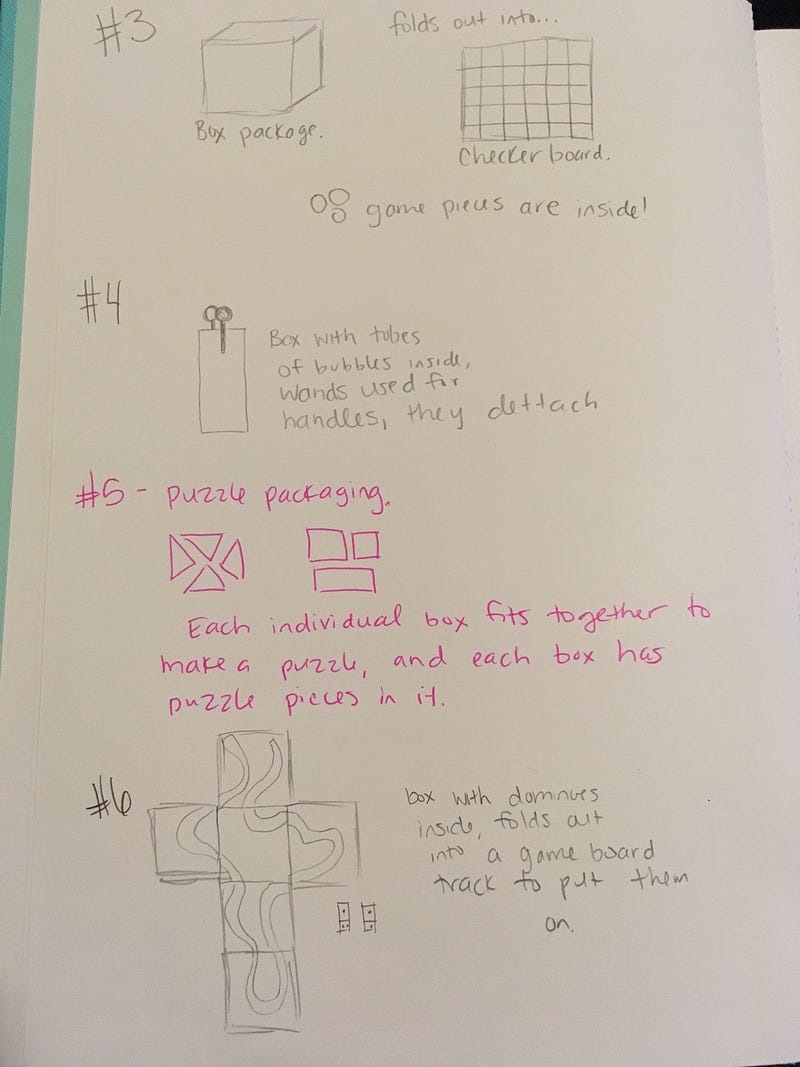 #3
folds out into...
Box package.
Checker board.
game pieces are inside!
#4
Box with tubes
of bubbles inside,
wands used for
handles, they dettach
#5 - puzzle packaging.
Each individual box fits together to
make a puzzle, and each box has
puzzle pieces in it.
#6
box with dominoes
inside, folds out
into a game board
track to put them
on.